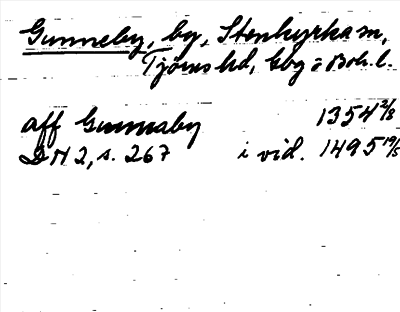 Gunneby, by, Stenkyrka sn,
Tjörns hd, Gbg o Boh. l.
aff Gunnaby 1354 2/8
DN 2, s. 267 i vid. 1495 19/5